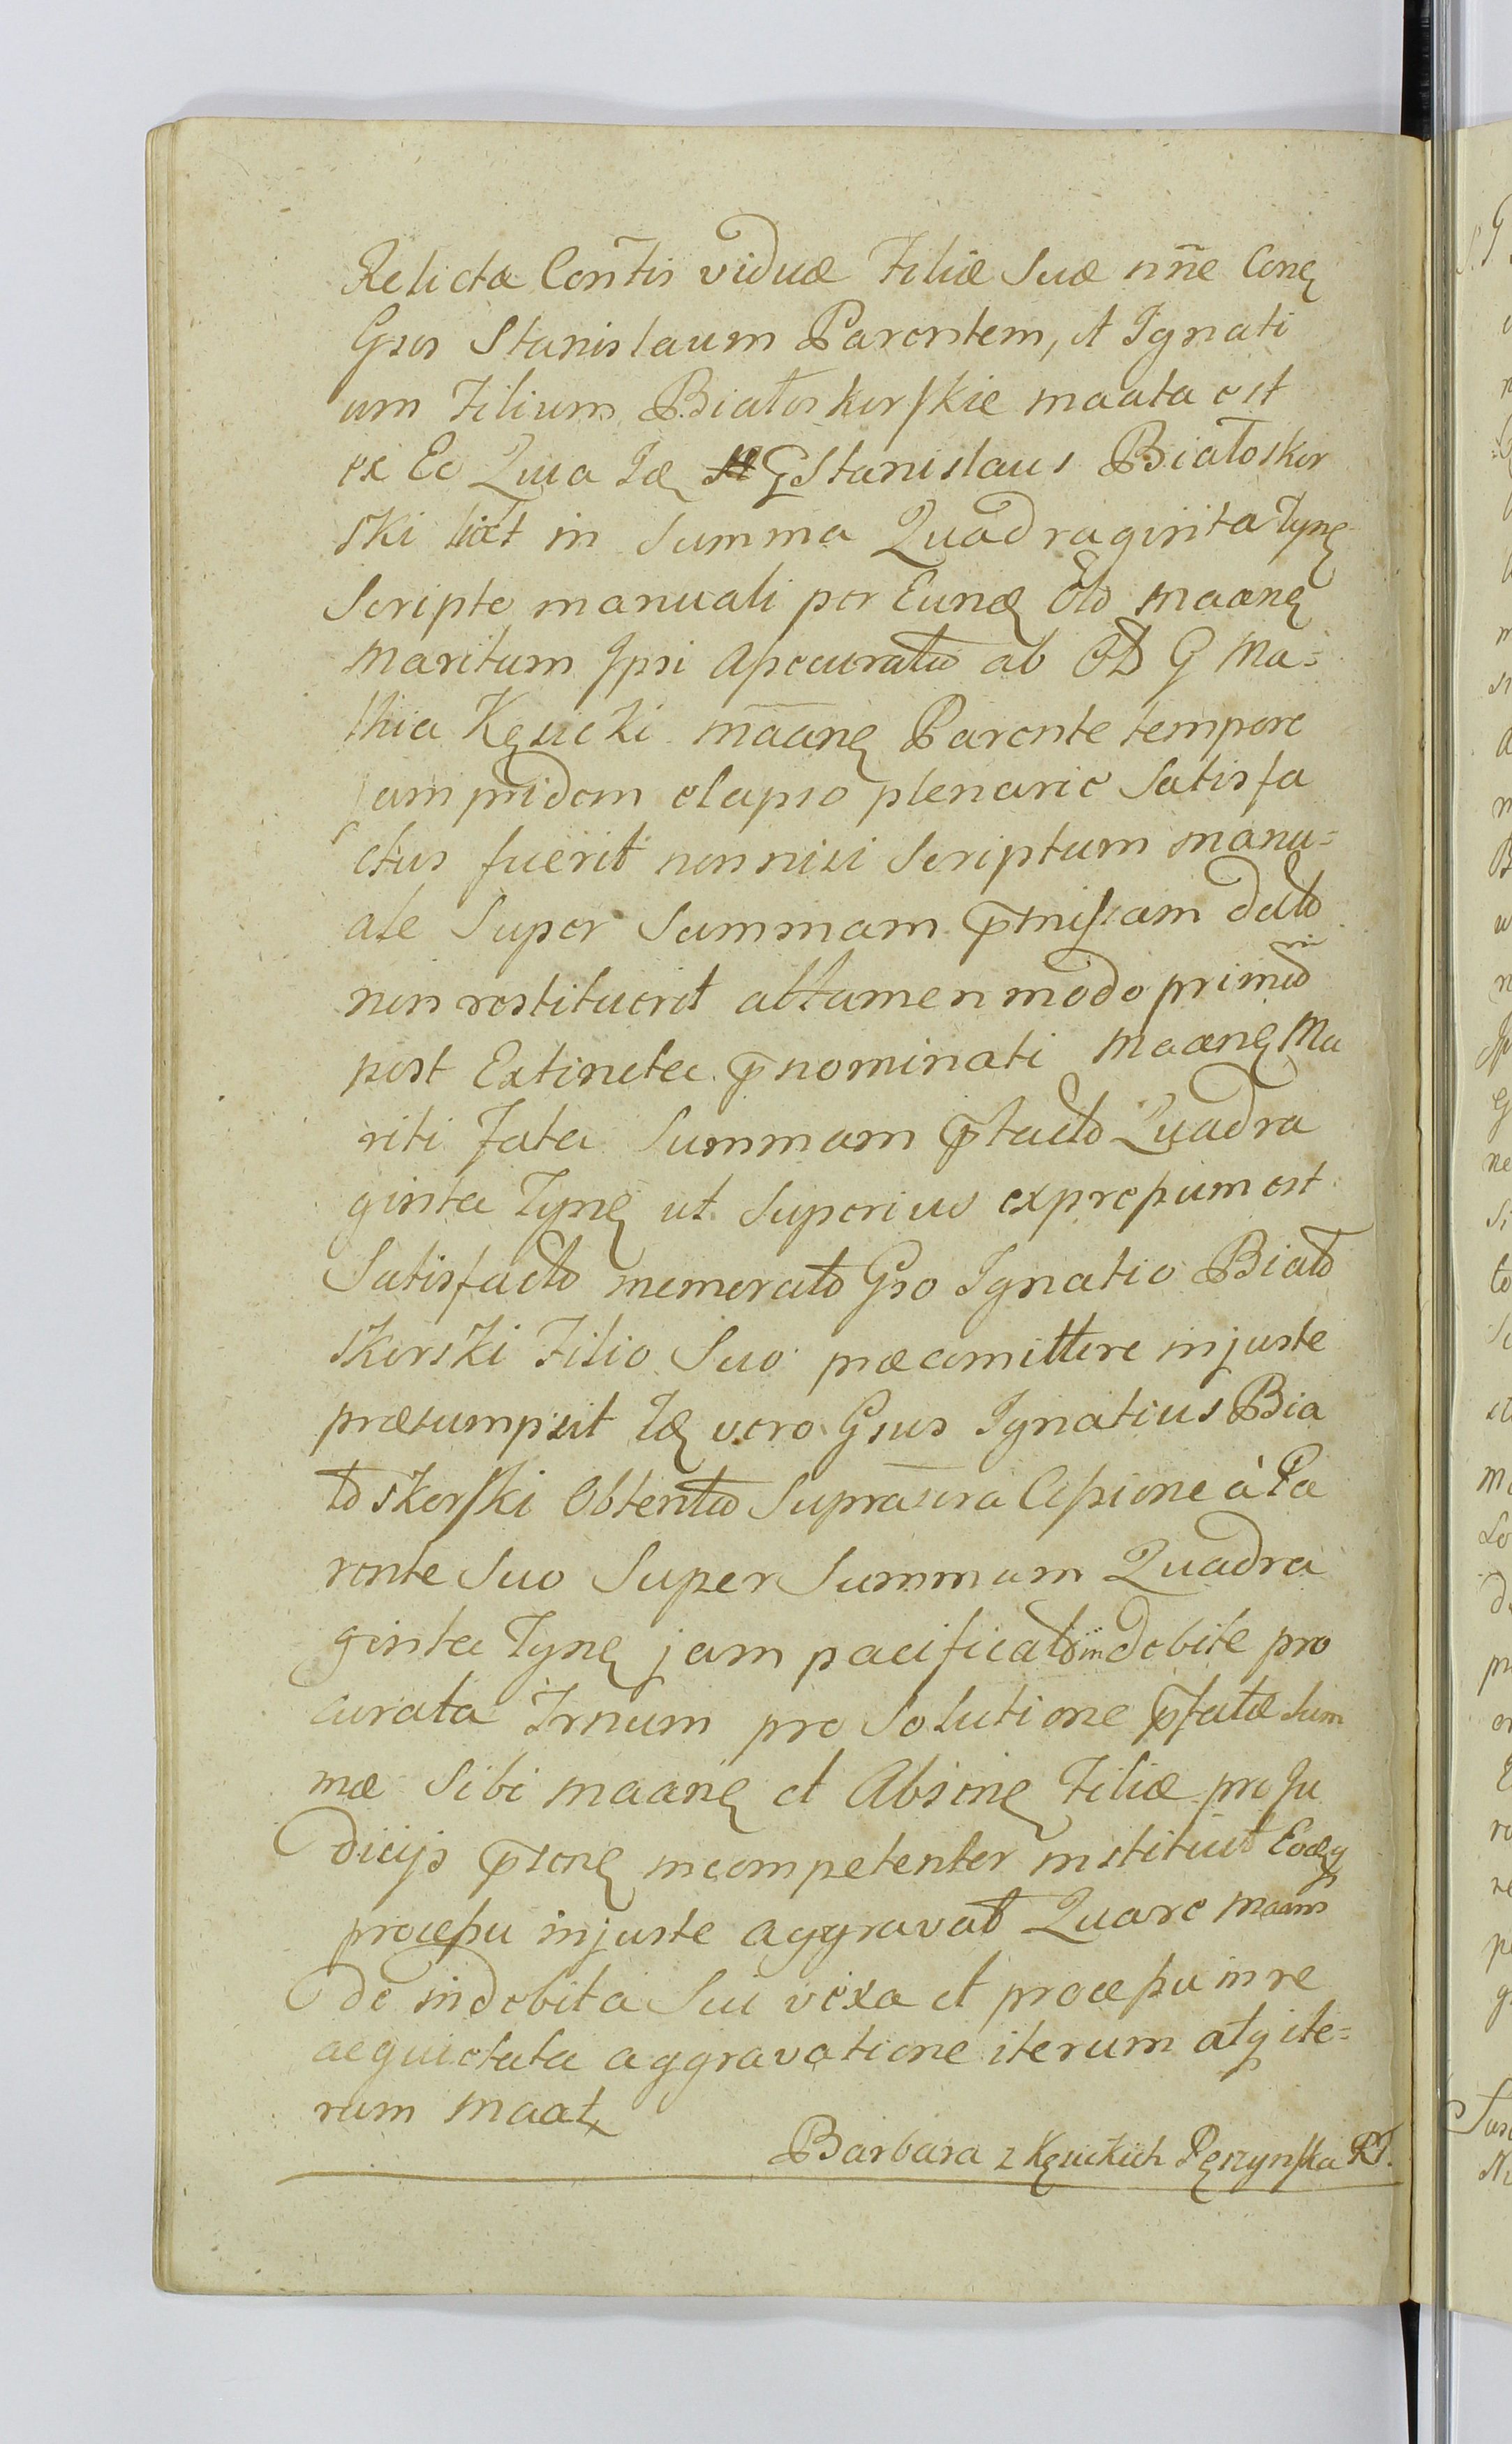 Relicta Con̄tis viduæ Filiæ Suæ nñe Conę
Gsos Stanislaum Parentem, et Ignati
um Filium Białoskorskie maata est
ex Eo Quia Idę G Stanislaus Białoskor
ski licet in Summa Quadraginta Tynę
Scripto manuali per Eundę Olo maanę
maritum Ipsi Apocurato ab Olo G Ma=
thia Kęsicki maanę Parente tempore
jam pridem elapso plenarie Satisfa
ctus fuerit non nisi Scriptum manu=
ale Super Summam p̄missam dato
non restituerit attamen modo primo
post Extincta p̄nominati Maanę Ma
riti Fata Summam p̄tacto Quadra
ginta Tynę ut Superius expressum est
Satisfacto memorato Gso Ignatio Biało
skorski Filio Suo præcomittere injuste
præsumpsit Idę vero Gsus Ignatius Bia
łoskorski Obtento Suprasora Cessione à Pa
rente Suo Super Summam Quadra
ginta Tynę jam pacificato indebite pro
curata Trnum pro Solutione p̄fatæ Sum
mæ Sibi maanę et Absonę Filiæ pro Ju
dicijs p̄sonę incompetenter instituit Eoqȝ
processu injuste aggravat Quare maans
de indebita Sui vexa et processu in re
aequietata aggravatione iterum atqȝ ite=
rum maat
Barbara z Kęsickich Pęszynska RT.